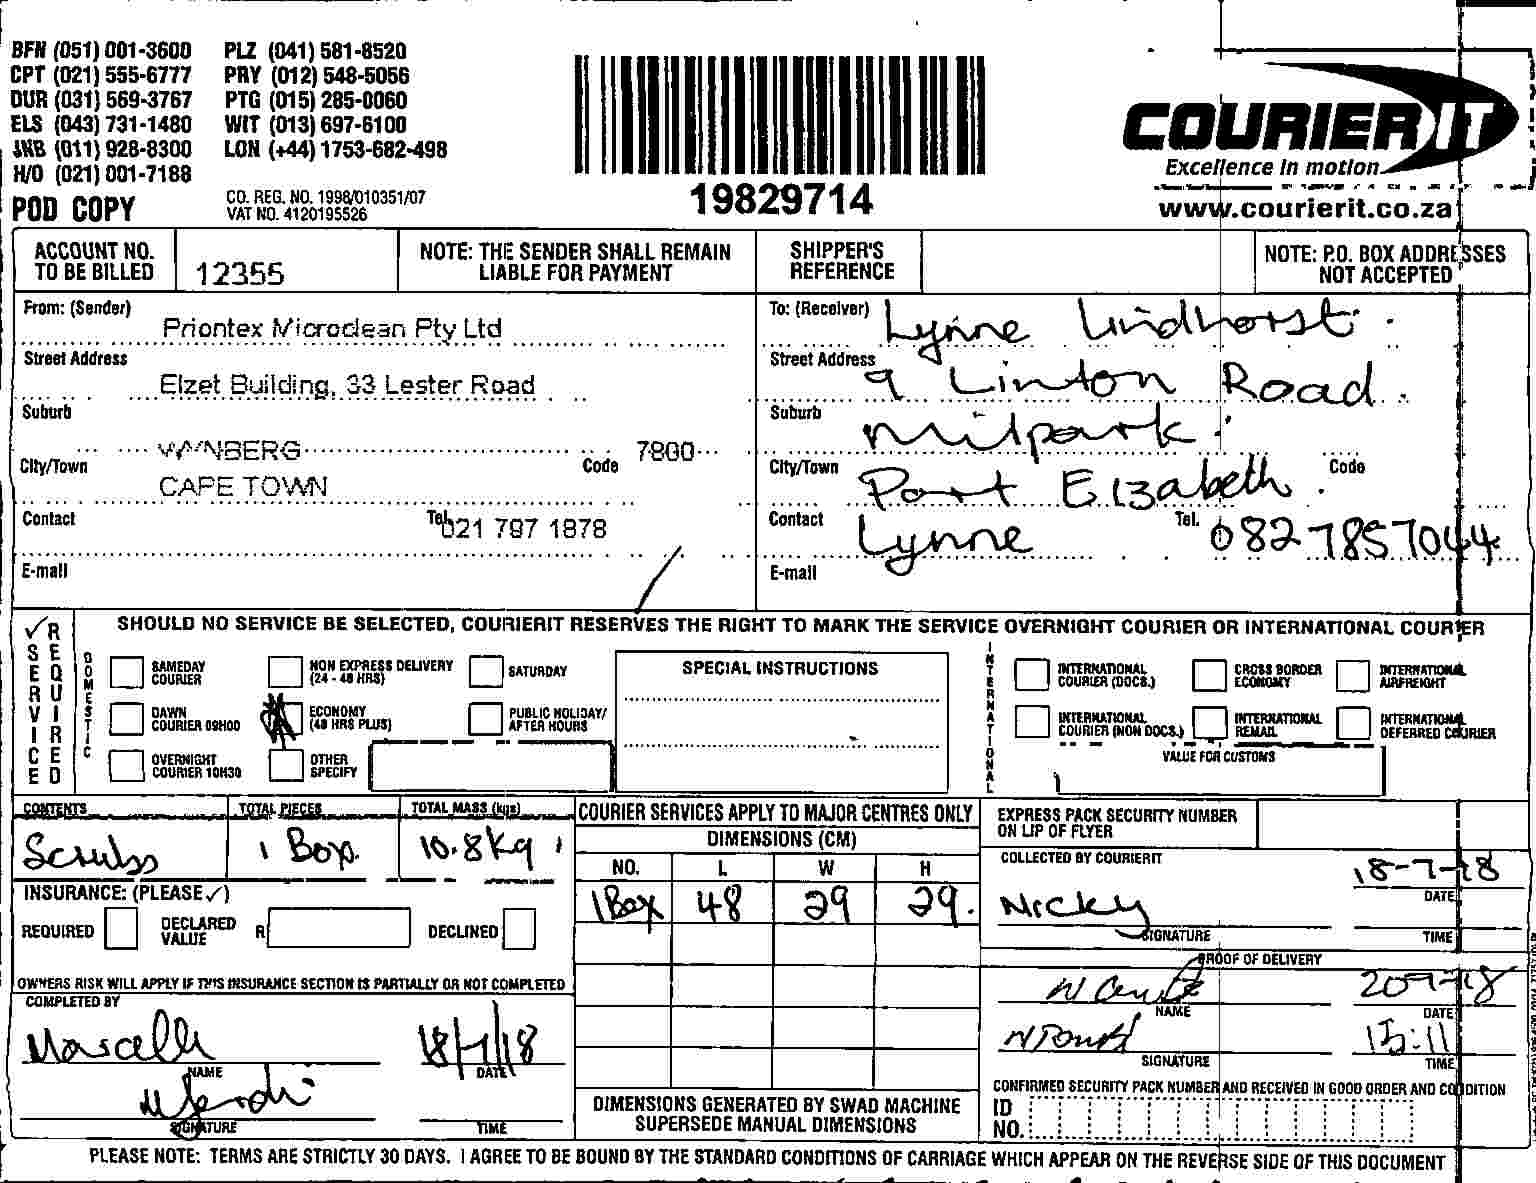 BFN (051) 001-3600 PLZ (041) 581-8520
CPT (021) 555-6777 PRY (012) 548-5056
DUR (031) 569-3767 PTG (015) 285-0060
ELS (043) 731-1480 WIT (013) 697-6100
JNB (011) 928-8300 LON (+44) 1753-682-498
H/O (021) 001-7188
POD COPY
CO. REG. NO. 1998/010351/07
VAT NO. 4120195526
19829714
COURIER IT
Excellence in motion
www.courierit.co.za
ACCOUNT NO. TO BE BILLED 12355
NOTE: THE SENDER SHALL REMAIN LIABLE FOR PAYMENT
SHIPPER'S REFERENCE
NOTE: P.O. BOX ADDRESSES NOT ACCEPTED
From: (Sender) Priontex Microclean Pty Ltd
Street Address Elzet Building, 33 Lester Road
Suburb WYNBERG
City/Town CAPE TOWN Code 7800
Contact Tel. 021 797 1878
E-mail
To: (Receiver) Lynne Lindhorst
Street Address 9 Linton Road
Suburb Milpark
City/Town Port Elizabeth Code
Contact Lynne Tel. 082 7857044
E-mail
✓ SERVICE REQUIRED
SHOULD NO SERVICE BE SELECTED, COURIERIT RESERVES THE RIGHT TO MARK THE SERVICE OVERNIGHT COURIER OR INTERNATIONAL COURIER
DOMESTIC
SAMEDAY COURIER
NON EXPRESS DELIVERY (24 - 48 HRS)
SATURDAY
DAWN COURIER 09H00
ECONOMY (48 HRS PLUS)
PUBLIC HOLIDAY/ AFTER HOURS
OVERNIGHT COURIER 10H30
OTHER SPECIFY
SPECIAL INSTRUCTIONS
INTERNATIONAL
INTERNATIONAL COURIER (DOCS.)
CROSS BORDER ECONOMY
INTERNATIONAL AIRFREIGHT
INTERNATIONAL COURIER (NON DOCS.)
INTERNATIONAL REMAIL
INTERNATIONAL DEFERRED COURIER
VALUE FOR CUSTOMS
CONTENTS TOTAL PIECES TOTAL MASS (kgs)
Scrubs 1 Box. 10.8kg
INSURANCE: (PLEASE ✓)
REQUIRED DECLARED VALUE R DECLINED
OWNERS RISK WILL APPLY IF THIS INSURANCE SECTION IS PARTIALLY OR NOT COMPLETED
COMPLETED BY
18/7/18
NAME DATE
SIGNATURE TIME
COURIER SERVICES APPLY TO MAJOR CENTRES ONLY
DIMENSIONS (CM)
NO. L W H
1 Box 48 29 29.
DIMENSIONS GENERATED BY SWAD MACHINE SUPERSEDE MANUAL DIMENSIONS
EXPRESS PACK SECURITY NUMBER ON LIP OF FLYER
COLLECTED BY COURIERIT
18-7-18
DATE
Nicky
SIGNATURE TIME
PROOF OF DELIVERY
NAME DATE
15:11
SIGNATURE TIME
CONFIRMED SECURITY PACK NUMBER AND RECEIVED IN GOOD ORDER AND CONDITION
ID NO.
PLEASE NOTE: TERMS ARE STRICTLY 30 DAYS. I AGREE TO BE BOUND BY THE STANDARD CONDITIONS OF CARRIAGE WHICH APPEAR ON THE REVERSE SIDE OF THIS DOCUMENT